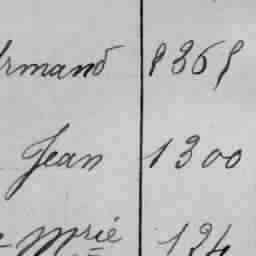 Armand 8369
Jean 1300
Mrie 124